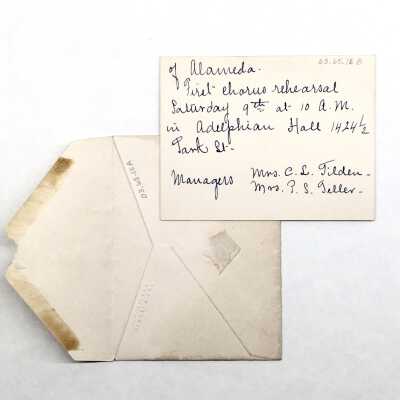 03.65.16 B
of Alameda.
First chorus rehearsal
Saturday 9th at 10 A.M.
in Adelphian Hall 1424½
Park St.
Managers Mrs. C. L. Tilden.
Mrs. P. S. Teller.
03.65.16A